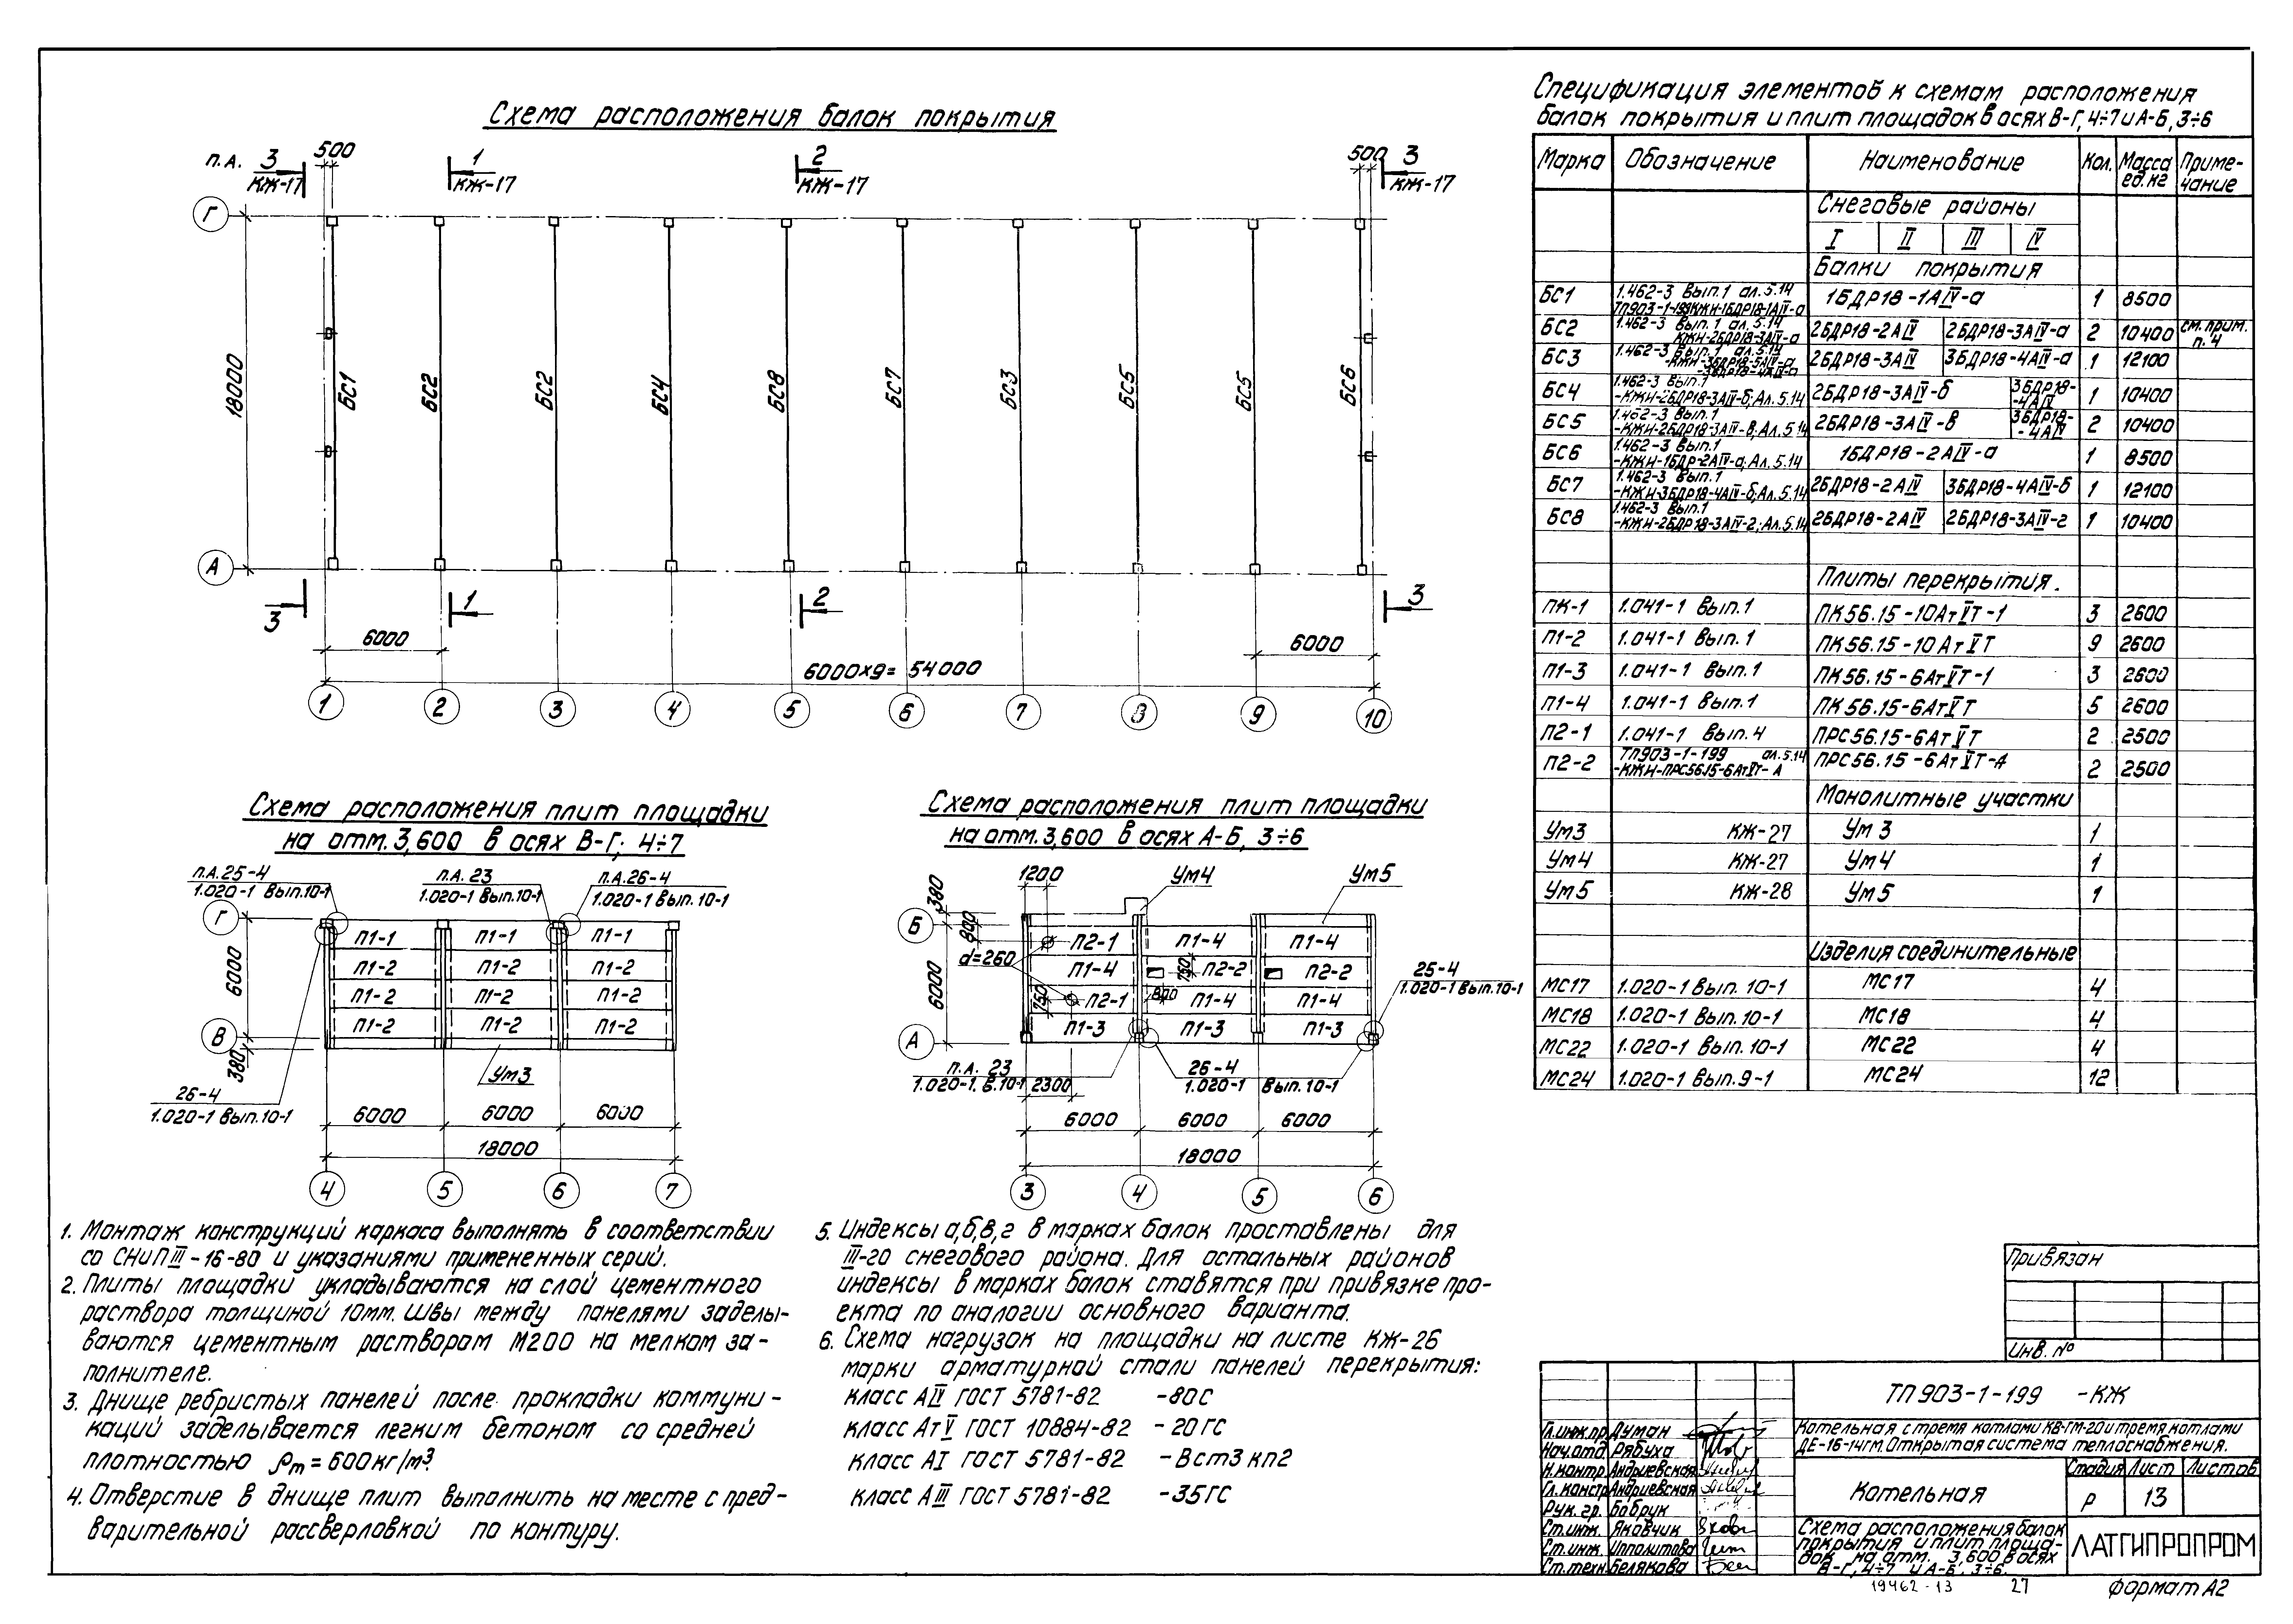 Схема расположения балок покрытия
п.А. 3 КЖ-17
500
1 КЖ-17
2 КЖ-17
500
3 КЖ-17
Г
18000
БС1 БС2 БС2 БС4 БС8 БС7 БС3 БС5 БС5 БС6
А
3 1 2 3
6000 6000
6000х9= 54000
1 2 3 4 5 6 7 8 9 10
Схема расположения плит площадки
на отм. 3,600 в осях В-Г; 4÷7
п.А.25-4
1.020-1 Вып.10-1
п.А. 23
1.020-1 Вып.10-1
п.А.26-4
1.020-1 Вып.10-1
Г
6000
В
380
П1-1 П1-1 П1-1
П1-2 П1-2 П1-2
П1-2 П1-2 П1-2
П1-2 П1-2 П1-2
Ум3
26-4
1.020-1 Вып.10-1
6000 6000 6000
18000
4 5 6 7
Схема расположения плит площадки
на отм. 3,600 в осях А-Б, 3÷6
1200 Ум4 Ум5
380
Б
800
d=260
6000
А
П2-1 П1-4 П1-4
П1-4 750 П2-2 П2-2
750 П2-1 800 П1-4 П1-4
П1-3 П1-3 П1-3
25-4
1.020-1 Вып.10-1
п.А. 23
1.020-1. В.10-1 2300
26-4
1.020-1 Вып.10-1
6000 6000 6000
18000
3 4 5 6
1. Монтаж конструкций каркаса выполнять в соответствии
со СНиП III-16-80 и указаниями примененных серий.
2. Плиты площадки укладываются на слой цементного
раствора толщиной 10мм. Швы между панелями заделы-
ваются цементным раствором М200 на мелком за-
полнителе.
3. Днище ребристых панелей после прокладки коммуни-
каций заделывается легким бетоном со средней
плотностью ρm = 600кг/м³.
4. Отверстие в днище плит выполнить на месте с пред-
варительной рассверловкой по контуру.
5. Индексы а,б,в,г в марках балок проставлены для
III-го снегового района. Для остальных районов
индексы в марках балок ставятся при привязке про-
екта по аналогии основного варианта.
6. Схема нагрузок на площадки на листе КЖ-26
марки арматурной стали панелей перекрытия:
класс АIV ГОСТ 5781-82 -80С
класс АтV ГОСТ 10884-82 -20ГС
класс АI ГОСТ 5781-82 -Вст3 кп2
класс АIII ГОСТ 5781-82 -35ГС
Спецификация элементов к схемам расположения
балок покрытия и плит площадок в осях В-Г, 4÷7 и А-Б, 3÷6
Марка Обозначение Наименование Кол. Масса ед.кг Приме-чание
Снеговые районы
I II III IV
Балки покрытия
БС1 1.462-3 Вып.1 ал.5.14 ТП903-1-199КЖН-1БДР18-1АIV-а 1БДР18-1АIV-а 1 8500
БС2 1.462-3 Вып.1 ал.5.14 КЖН-2БДР18-3АIV-а 2БДР18-2АIV 2БДР18-3АIV-а 2 10400 см.прим. п.4
БС3 1.462-3 Вып.1 ал.5.14 2БДР18-3АIV 3БДР18-4АIV-а 1 12100
БС4 1.462-3 Вып.1 -КЖН-2БДР18-3АIV-б; Ал.5.14 2БДР18-3АIV-б 3БДР18-4АIV 1 10400
БС5 1.462-3 Вып.1 -КЖН-2БДР18-3АIV-в; Ал.5.14 2БДР18-3АIV-в 3БДР18-4АIV 2 10400
БС6 1.462-3 Вып.1 -КЖН-1БДР-2АIV-а; Ал.5.14 1БДР18-2АIV-а 1 8500
БС7 1.462-3 Вып.1 -КЖН-3БДР18-4АIV-б; Ал.5.14 2БДР18-2АIV 3БДР18-4АIV-б 1 12100
БС8 1.462-3 Вып.1 -КЖН-2БДР18-3АIV-г; Ал.5.14 2БДР18-2АIV 2БДР18-3АIV-г 1 10400
Плиты перекрытия.
ПК-1 1.041-1 Вып.1 ПК56.15-10АтVТ-1 3 2600
П1-2 1.041-1 Вып.1 ПК56.15-10АтVТ 9 2600
П1-3 1.041-1 Вып.1 ПК56.15-6АтVТ-1 3 2600
П1-4 1.041-1 Вып.1 ПК56.15-6АтVТ 5 2600
П2-1 1.041-1 Вып.4 ПРС56.15-6АтVТ 2 2500
П2-2 ТП903-1-199 ал.5.14 -КЖН-ПРС56.15-6АтVТ-А ПРС56.15-6АтVТ-А 2 2500
Монолитные участки
Ум3 КЖ-27 Ум3 1
Ум4 КЖ-27 Ум4 1
Ум5 КЖ-28 Ум5 1
Изделия соединительные
МС17 1.020-1 Вып.10-1 МС17 4
МС18 1.020-1 Вып.10-1 МС18 4
МС22 1.020-1 Вып.10-1 МС22 4
МС24 1.020-1 Вып.9-1 МС24 12
Привязан
Инв. №
ТП903-1-199 -КЖ
Котельная с тремя котлами КВ-ГМ-20 и тремя котлами
ДЕ-16-14ГМ. Открытая система теплоснабжения.
Гл.инж.пр. Думан
Нач.отд. Рябуха
Н.контр. Андриевская
Гл.констр. Андриевская
Рук.гр. Бобрук
Ст.инж. Яковчик
Ст.инж. Ипполитова
Ст.техн. Белякова
Котельная
Стадия Лист Листов
Р 13
Схема расположения балок
покрытия и плит площа-
док на отм. 3,600 в осях
В-Г, 4÷7 и А-Б, 3÷6.
ЛАТГИПРОПРОМ
19462-13 27
формат А2